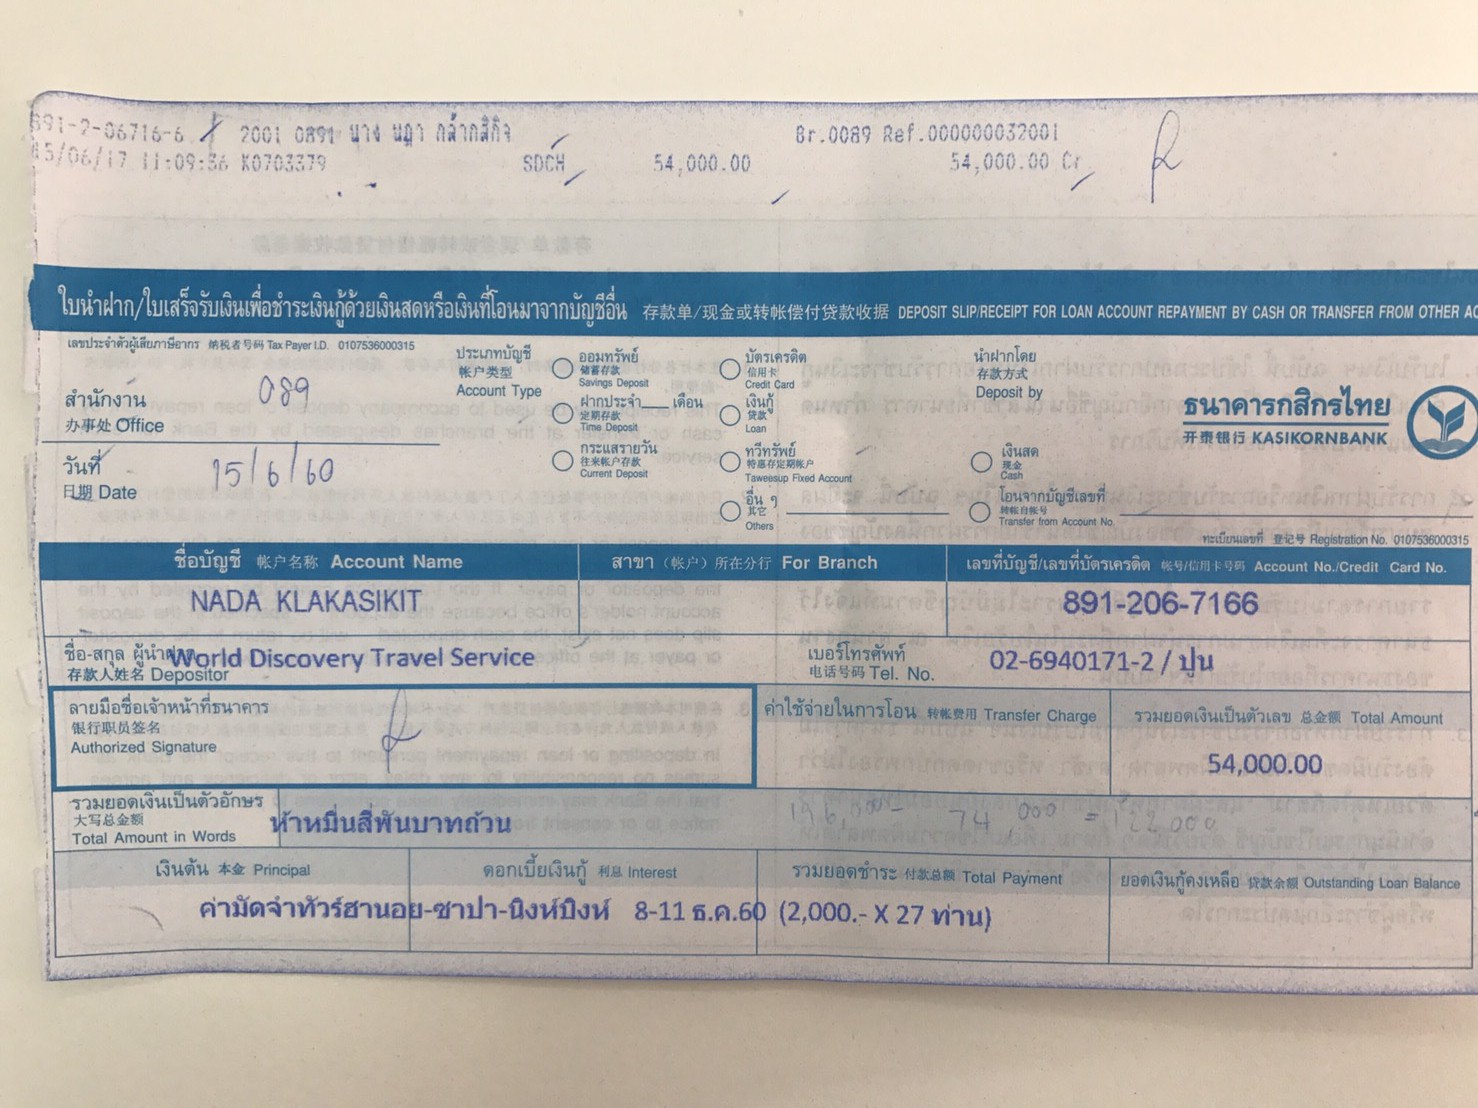 891-2-06716-6 2001 0891 นาง นฎา กล้ากสิกิจ Br.0089 Ref.000000032001
15/06/17 11:09:36 K0703379 SDCH 54,000.00 54,000.00 Cr
ใบนำฝาก/ใบเสร็จรับเงินเพื่อชำระเงินกู้ด้วยเงินสดหรือเงินที่โอนมาจากบัญชีอื่น 存款单/现金或转帐偿付贷款收据 DEPOSIT SLIP/RECEIPT FOR LOAN ACCOUNT REPAYMENT BY CASH OR TRANSFER FROM OTHER AC
เลขประจำตัวผู้เสียภาษีอากร 纳税者号码 Tax Payer I.D. 0107536000315
สำนักงาน 089
办事处 Office
วันที่ 15/6/60
日期 Date
ประเภทบัญชี
帐户类型
Account Type
ออมทรัพย์
储蓄存款
Savings Deposit
ฝากประจำ เดือน
定期存款
Time Deposit
กระแสรายวัน
往来帐户存款
Current Deposit
บัตรเครดิต
信用卡
Credit Card
เงินกู้
贷款
Loan
ทวีทรัพย์
特惠存定期帐户
Taweesup Fixed Account
อื่น ๆ
其它
Others
นำฝากโดย
存款方式
Deposit by
เงินสด
现金
Cash
โอนจากบัญชีเลขที่
转帐自帐号
Transfer from Account No.
ธนาคารกสิกรไทย
开泰银行 KASIKORNBANK
ทะเบียนเลขที่ 登记号 Registration No. 0107536000315
ชื่อบัญชี 帐户名称 Account Name สาขา (帐户) 所在分行 For Branch เลขที่บัญชี/เลขที่บัตรเครดิต 帐号/信用卡号码 Account No./Credit Card No.
NADA KLAKASIKIT 891-206-7166
ชื่อ-สกุล ผู้นำฝาก World Discovery Travel Service เบอร์โทรศัพท์ 02-6940171-2 / ปูน
存款人姓名 Depositor 电话号码 Tel. No.
ลายมือชื่อเจ้าหน้าที่ธนาคาร
银行职员签名
Authorized Signature
ค่าใช้จ่ายในการโอน 转帐费用 Transfer Charge รวมยอดเงินเป็นตัวเลข 总金额 Total Amount
54,000.00
รวมยอดเงินเป็นตัวอักษร
大写总金额
Total Amount in Words
ห้าหมื่นสี่พันบาทถ้วน
74,000 = 122000
เงินต้น 本金 Principal ดอกเบี้ยเงินกู้ 利息 Interest รวมยอดชำระ 付款总额 Total Payment ยอดเงินกู้คงเหลือ 贷款余额 Outstanding Loan Balance
ค่ามัดจำทัวร์ฮานอย-ซาปา-นิงห์บิงห์ 8-11 ธ.ค.60 (2,000.- X 27 ท่าน)